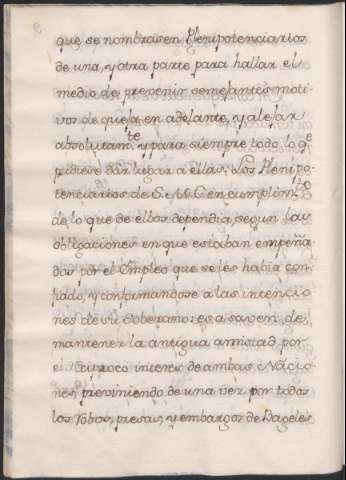 que se nombrasen Plenipotenciarios
de una, y otra parte para hallar el
medio de prevenir semejantes moti-
vos de queja en adelante, y alejar
absolutamte. y para siempre todo lo qe
pudiese dar lugar a ellas. Los Plenipo-
tenciarios de S.M.C. en cumplimto
de lo que de ellos dependia, segun las
obligaciones en que estaban empeña-
dos por el Empleo que se les habia con-
fiado, y conformandose a las intencio-
nes de su Soberano: es a saver: de
mantener la antigua amistad por
el reciproco interes de ambas Nacio-
nes, previniendo de una vez por todas
los Robos, presas, y embargos de Bageles